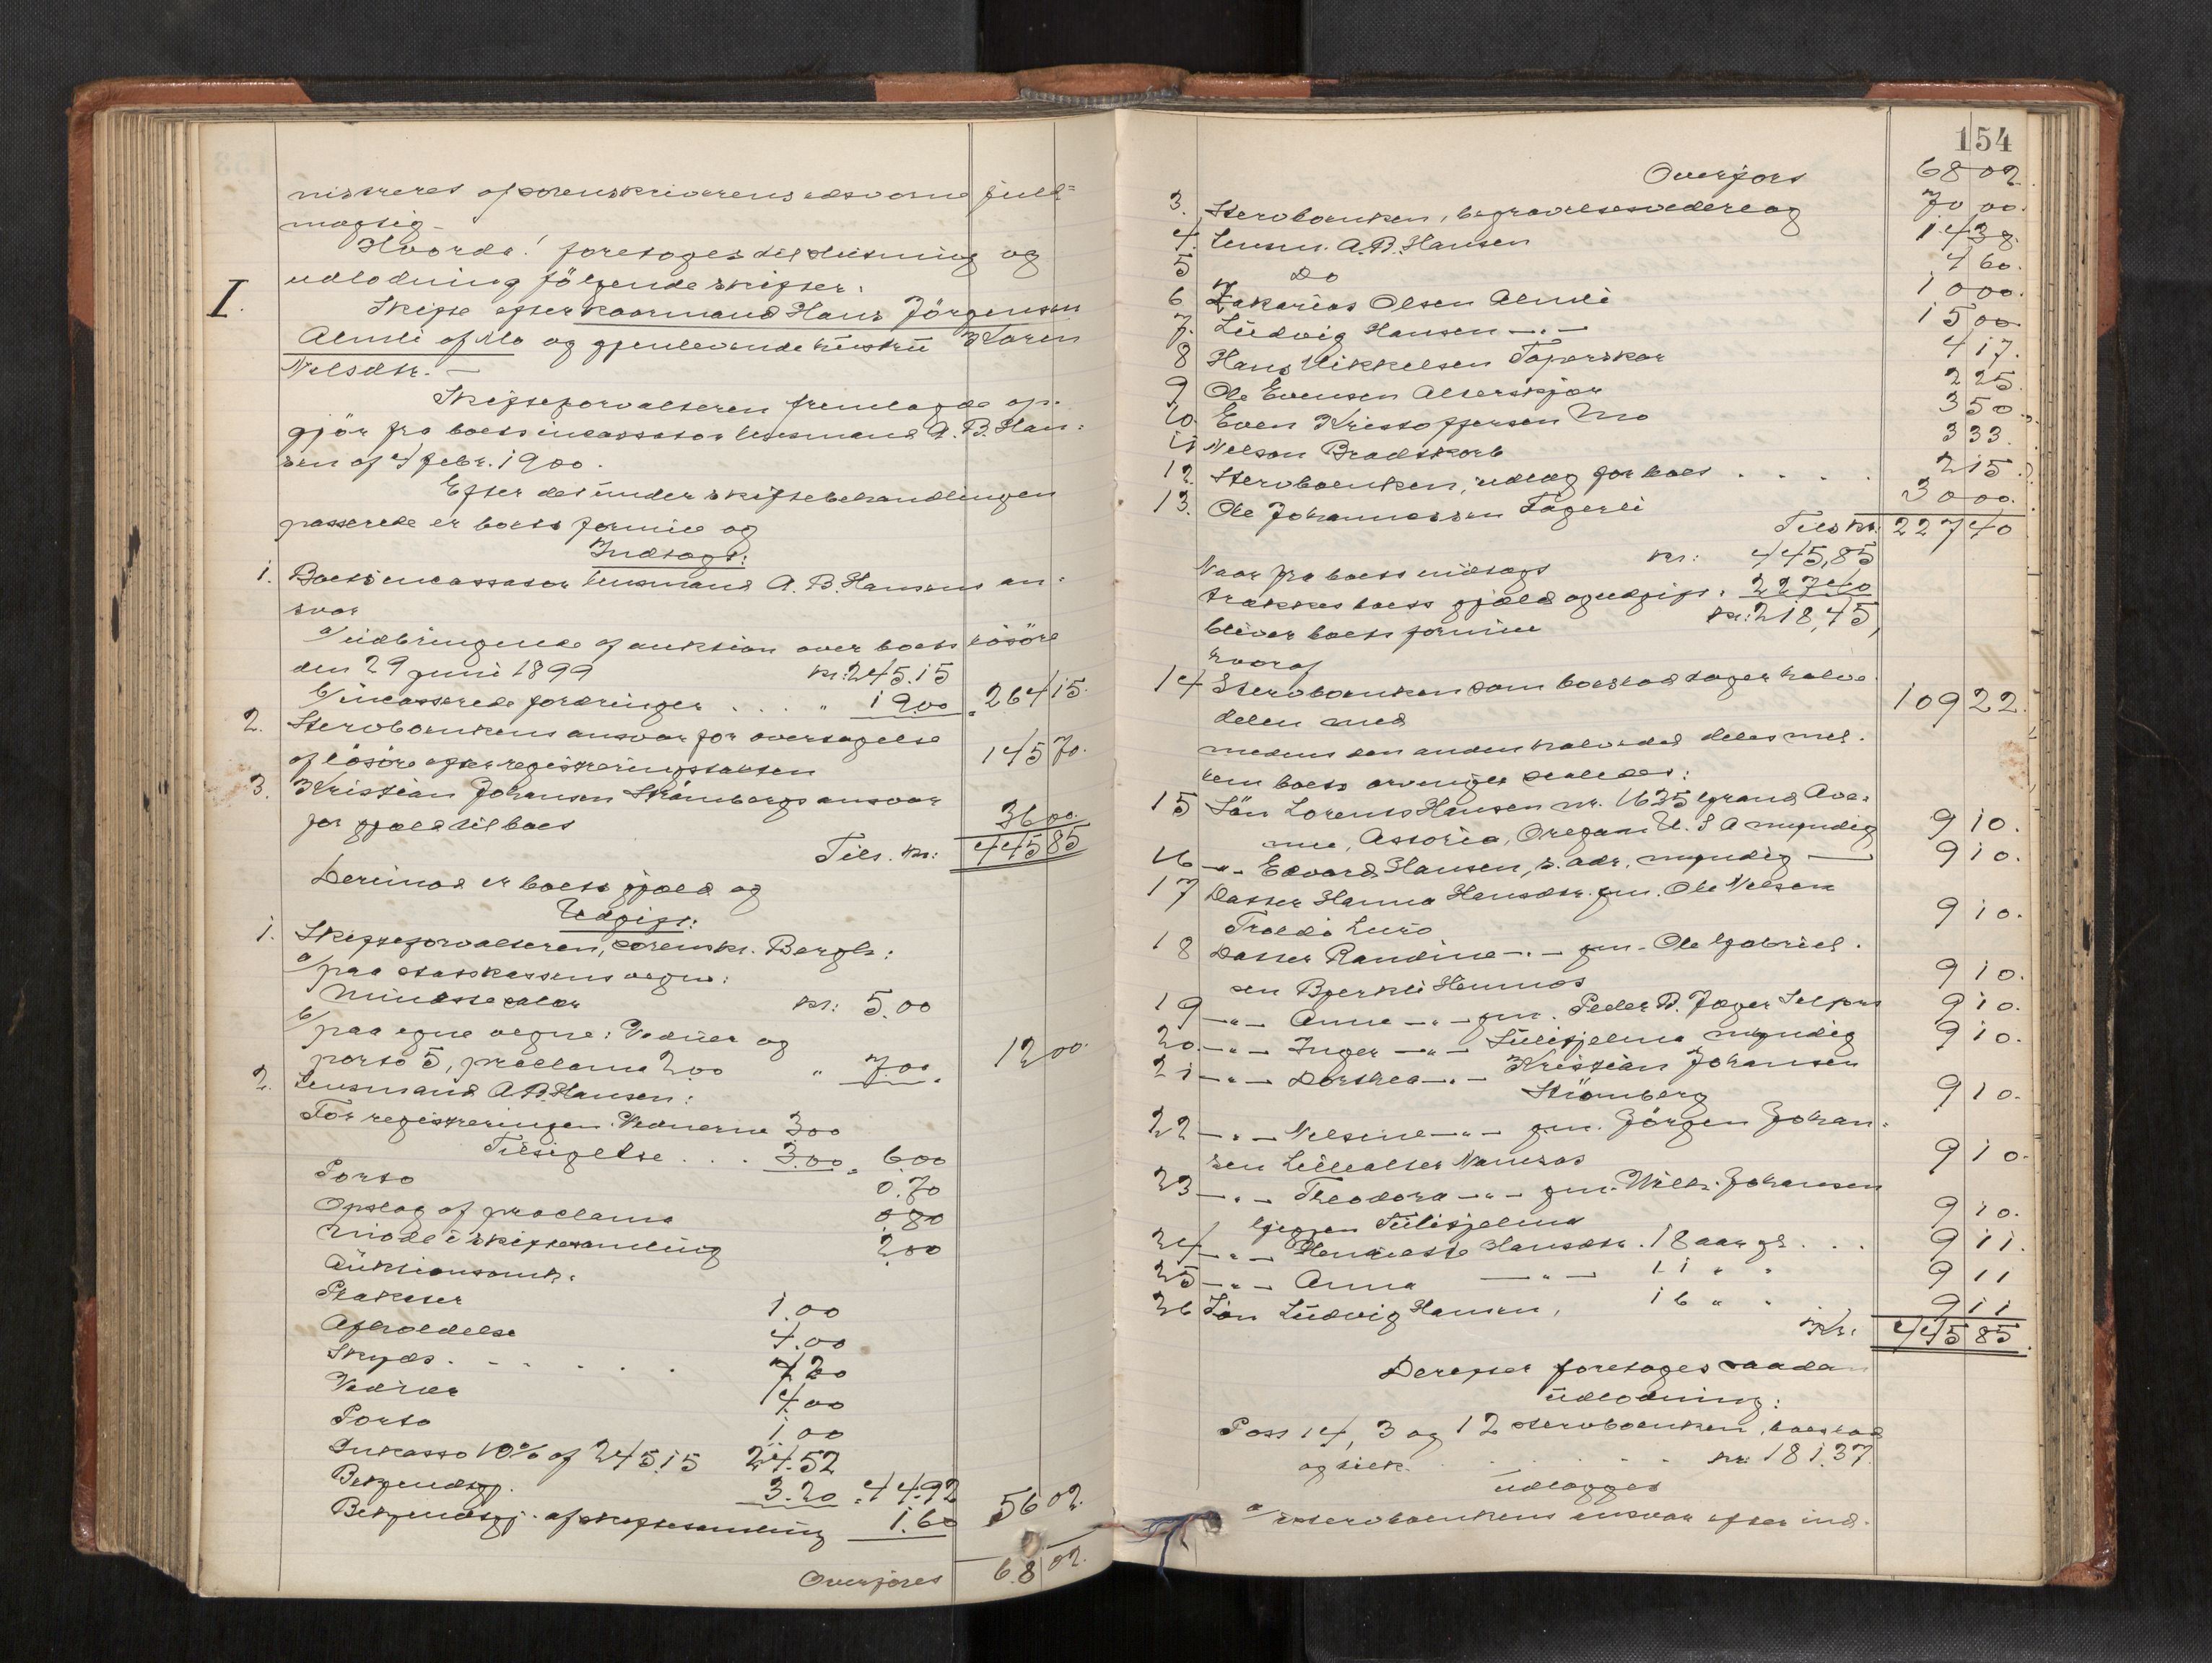 nistreret af sorenskriverens edsvorne fuld=
mægtig.
Hvorda! foretoges til slutning og
udlodning følgende skifter:
I.
Skifte efter kaarmand Hans Jörgensen
Almli af Mo og gjenlevende hustru Maren
Nilsdtr. —
Skifteforvalteren fremlagde op-
gjör fra boets incassator lensmand A. B. Han=
sen af 4 febr. 1900.
Efter det under skiftebehandlingen
passerede er boets formue og
Indtægt:
1. Boets incassator lensmand A. B. Hansens an=
svar
a/ udbringende af auktion over boets lösöre
den 29 juni 1899 kr: 245.15
b/ incasserede fordringer . . . " 19.00 = 264 15.
2. Stervboenkens ansvar for overtagelse
af lösöre efter registreringstaksten 145 70.
3. Kristian Johansen Strömbergs ansvar
for gjæld til boet 36 00.
Tils. kr: 445 85
Derimod er boets gjæld og
Udgift:
1. Skifteforvalteren, sorenskr. Bergh:
a/ paa statskassens vegne:
Mindste salær kr: 5.00
b/ paa egne vegne: Veduer og
porto 5, proclama 2.00 " 7.00 = 12 00.
2. Lensmand A. B. Hansen:
For registreringen. Vidnerne 3.00
Tilsigelse . . . 3.00 = 6.00
Porto 0.70
Opslag af proclama 0.80
Möde i skiftesamling 2.00
Auktionsomk.
Plakater 1.00
Afholdelse 4.00
Skyds . . . . . . 7.20
Vidner 4.00
Porto 1.00
Inkasso 10% af 245.15 24.52
Bekjendtgj. 3.20 = 44.92
Bekjendtgj. af skiftesamling 1.60 56 02.
Overföres 68 02.
154
Overfört 68 02
3. Stervboenken, begravelsesvederlag 70 00.
4. Lensm. A. B. Hansen 14 38.
5 Do 4 60.
6 Zakarias Olsen Almli 10 00.
7. Ludvig Hansen —"— 15 00
8 Hans Mikkelsen Toperskar 4 17.
9 Ole Evensen Alterskjær 2 25.
10. Even Kristoffersen Mo 3 50.
11 Nelson Bradskorb 3 33.
12. Stervboenken, udlæg for boet . . . . 2 15.
13. Ole Johannessen Fagerli 30 00.
Tils kr: 227 40
Naar fra boets indtægt kr: 445,85
trækkes boets gjæld og udgift. 227,40
bliver boets formue kr: 218,45,
hvoraf
14 Stervboenken som boeslod tager halv-
delen med 109 22.
medens den anden halvdel deles mel-
lem boets arvinger saaledes:
15 Sön Lorents Hansen nr. 1635 Grand Ave-
nue, Astoria, Oregan U. S A myndig 9 10.
16 —"— Edvard Hansen, s. adr. myndig — 9 10.
17 Datter Hanna Hansdtr. gm. Ole Nilsen
Troldö Lurö 9 10.
18 Datter Randine —"— gm. Ole Gabriel-
sen Bjerkli Hemnes 9 10.
19 —"— Anne —"— gm. Peder B. Jæger Selfors 9 10.
20. —"— Inger —"— Sulitjelma myndig 9 10.
21 —"— Dorthea —"— Kristian Johansen
Strömberg 9 10.
22 —"— Nilsine —"— gm. Jörgen Johan-
sen Lillealter Nævernes 9 10.
23 —"— Theodora —"— gm. Wilh. Johansen
Gjeggen Sulitjelma 9 10.
24 —"— Henriette Hansdtr. 18 aar gl. . . . 9 11.
25 —"— Anna —"— 11 " " 9 11
26 Sön Ludvig Hansen, 16 " " 9 11
Kr: 445 85.
Derefter foretoges saadan
udlodning:
Post 14, 3 og 12 stervboenken, boeslod
og tilk. . . . . . . kr. 181.37.
udlægges
a/ i stervboenkens ansvar efter ind-